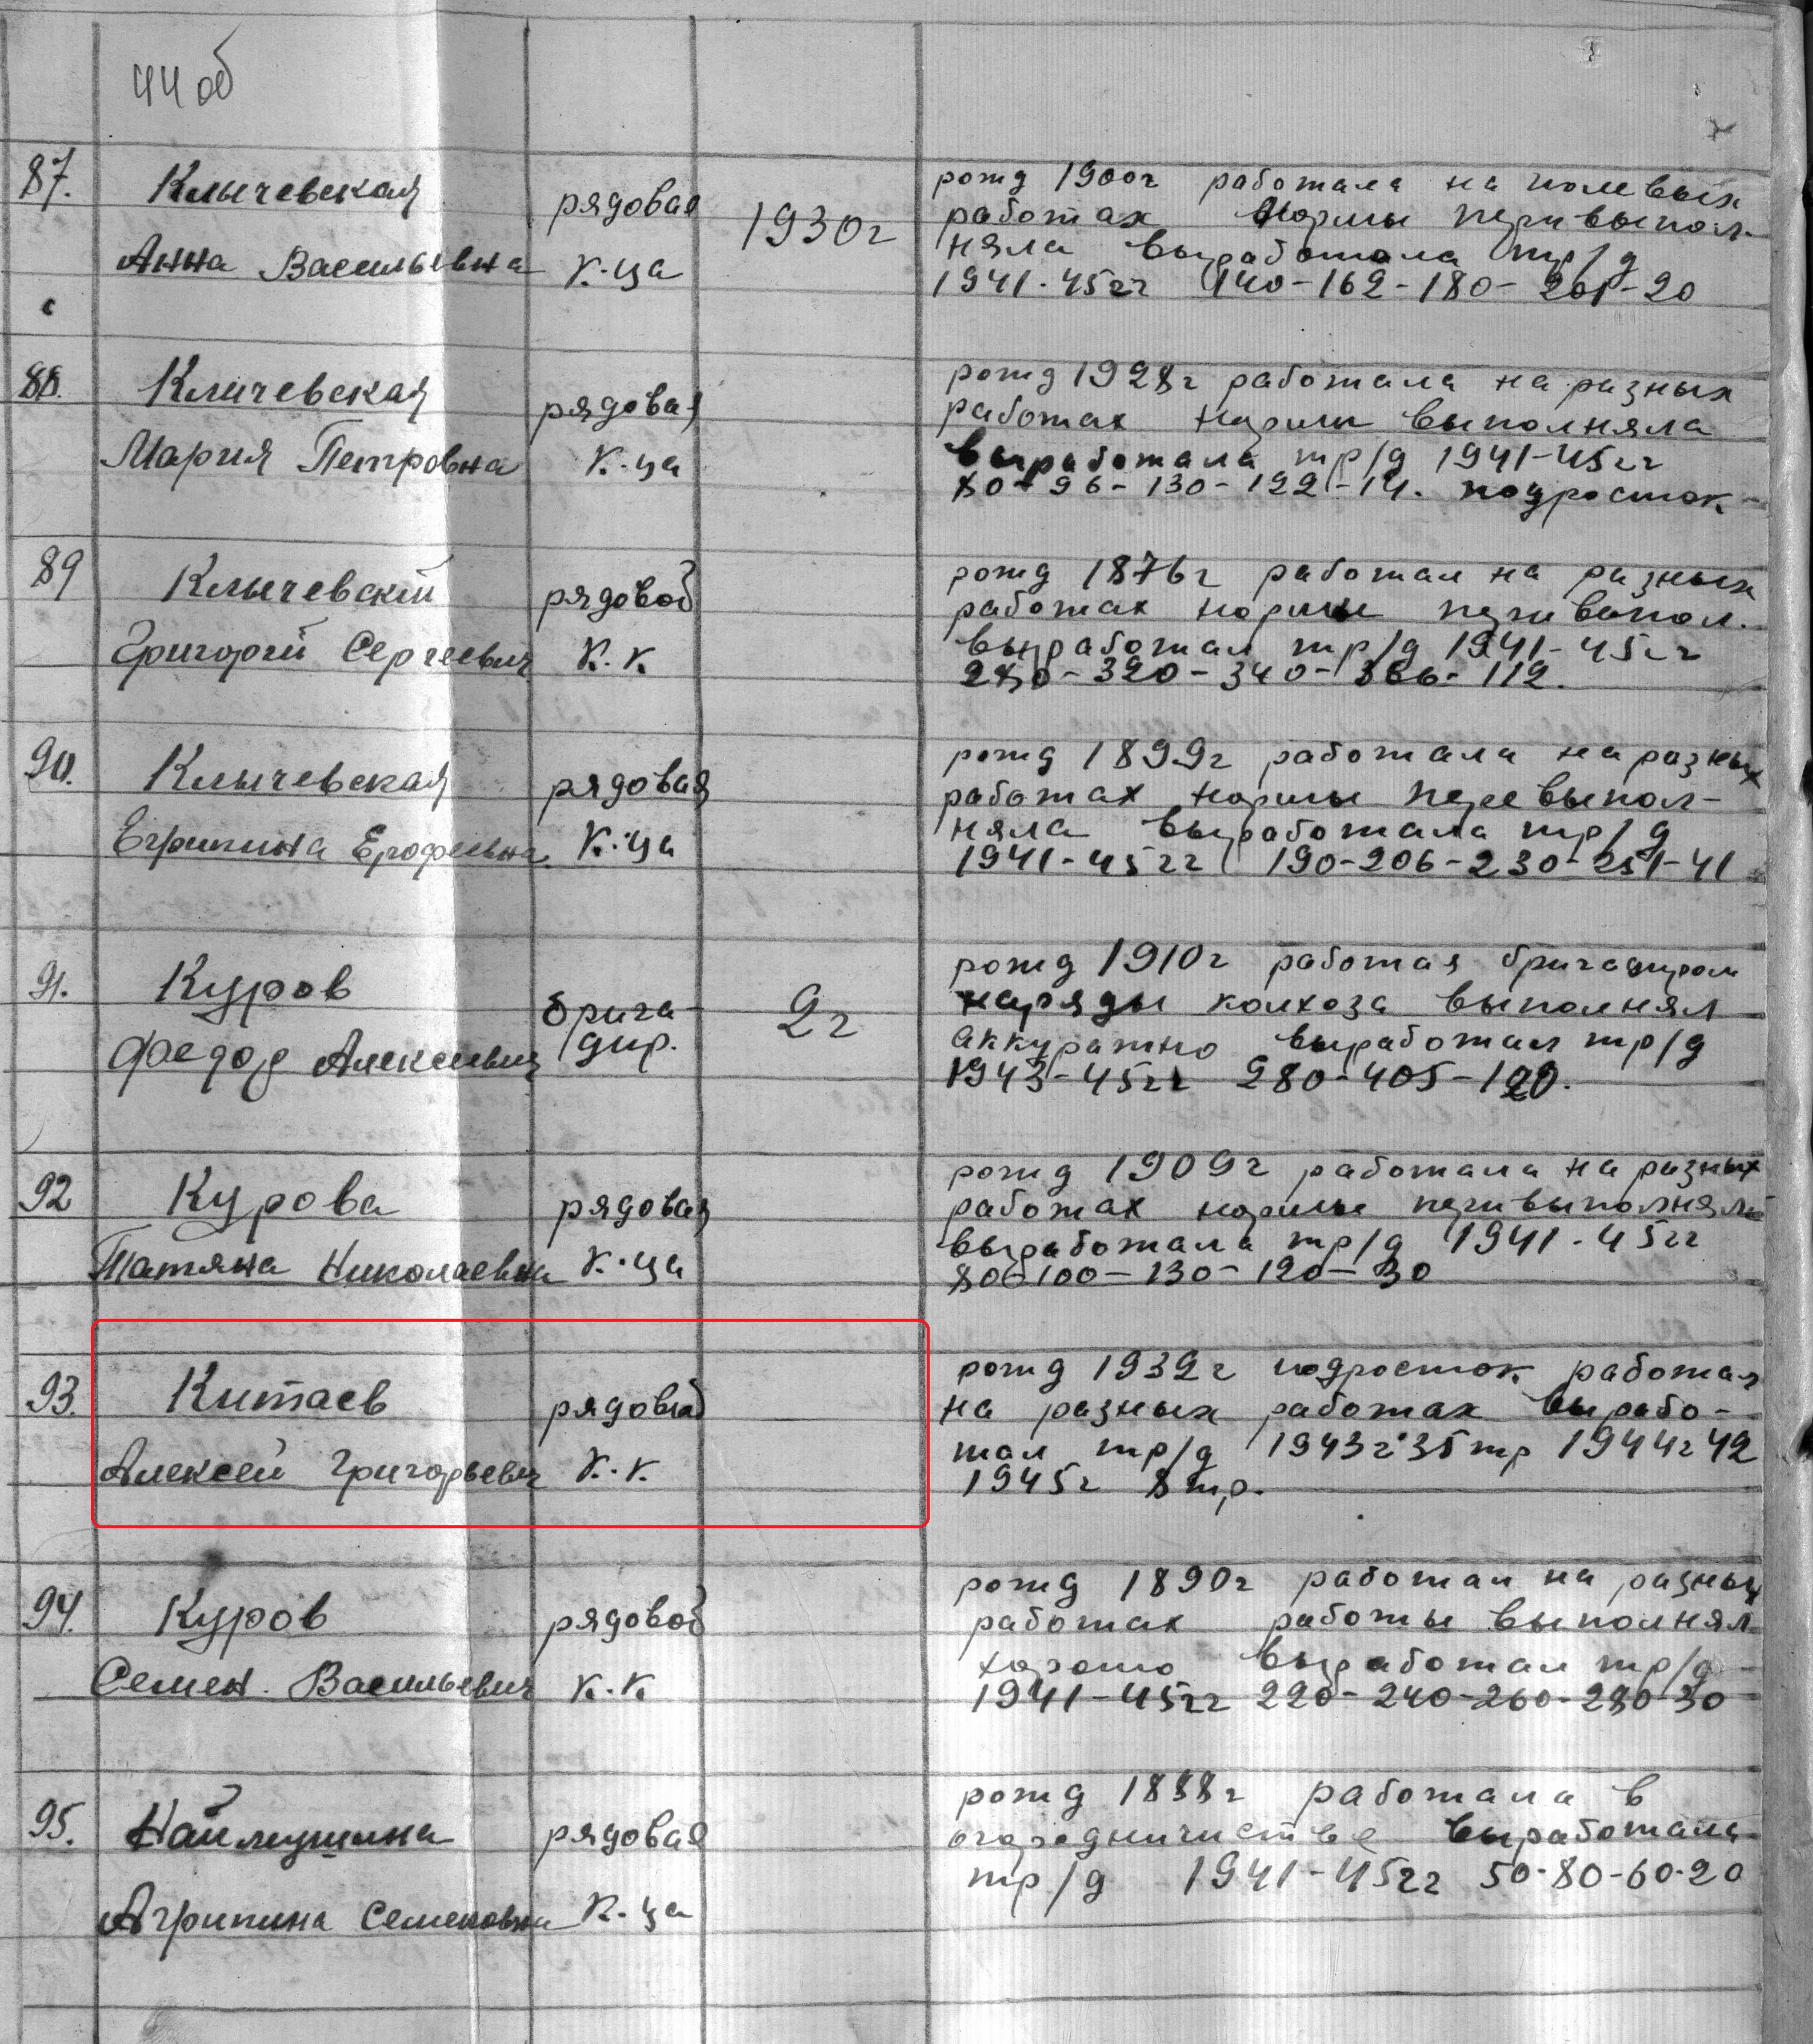 44 об
87. Клычевская рядовая 1930г рожд 1900г работала на полевых
работах нормы перевыпол-
Анна Васильевна к-ца няла выработала тр/д
1941-45гг 140-162-180-201-20
88. Кличевская рядовая рожд 1928г работала на разных
работах нормы выполняла
Мария Петровна к-ца выработала тр/д 1941-45гг
80-96-130-122-14. подросток
89 Клычевский рядовой рожд 1876г работал на разных
работах нормы перевыпол.
Григорий Сергеевич к.к выработал тр/д 1941-45гг
280-320-340-366-112.
90. Клычевская рядовая рожд 1899г работала на разных
работах нормы перевыпол-
Егрипина Ерофеевна к-ца няла выработала тр/д
1941-45гг 190-206-230-251-41
91. Куров брига- 2г рожд 1910г работая бригадиром
дир. наряды колхоза выполнял
Федор Алексеевич аккуратно выработал тр/д
1943-45гг 280-405-120.
92 Курова рядовая рожд 1909г работала на разных
работах нормы перевыполняла
Татяна Николаевна к-ца выработала тр/д 1941-45гг
80-100-130-120-30
93. Китаев рядовой рожд 1932г подросток работал
на разных работах вырабо-
Алексей Григорьевич к.к. тал тр/д 1943г 35тр 1944г 42
1945г 8 тр.
94. Куров рядовой рожд 1890г работал на разных
работах работы выполнял
Семен Васильевич к.к хорошо выработал тр/д
1941-45гг 220-240-260-280-30
95. Наймушина рядовая рожд 1888г работала в
огородничистве выработала
Агрипина Семеновна к-ца тр/д 1941-45гг 50-80-60-20